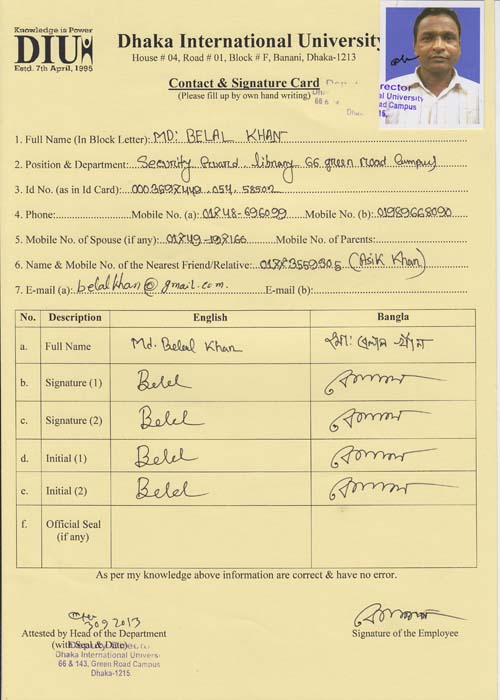 Knowledge is Power
DIU
Estd. 7th April, 1995
Dhaka International University
House # 04, Road # 01, Block # F, Banani, Dhaka-1213
Contact & Signature Card
(Please fill up by own hand writing)
rector
al University
ad Campus
1. Full Name (In Block Letter): MD: BELAL KHAN
2. Position & Department: Security Guard library 66 green Road Campus
3. Id No. (as in Id Card):
4. Phone: Mobile No. (a): 01848-696099 Mobile No. (b): 01989668090
5. Mobile No. of Spouse (if any): 01849-198166 Mobile No. of Parents:
6. Name & Mobile No. of the Nearest Friend/Relative: 01883559305 (Asik Khan)
7. E-mail (a): belalkhan@gmail.com. E-mail (b):
No. Description English Bangla
a. Full Name Md. Belal Khan মো: বেলাল খাঁন
b. Signature (1) Belel বেলাল
c. Signature (2) Belel বেলাল
d. Initial (1) Belel বেলাল
e. Initial (2) Belel বেলাল
f. Official Seal
(if any)
As per my knowledge above information are correct & have no error.
30 9 2013
Attested by Head of the Department
(with Seal & Date)
Dhaka International Univers
66 & 143, Green Road Campus
Dhaka-1215.
বেলাল
Signature of the Employee